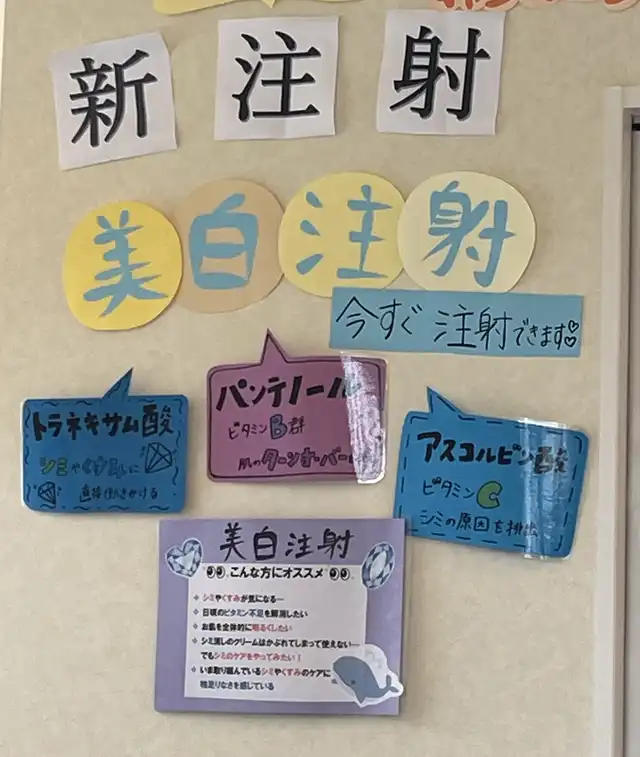 新注射
美白注射
今すぐ注射できます♡♡
パンテノール
ビタミンB群
肌のターンオーバー
トラネキサム酸
シミやくすみに
直接働きかける
アスコルビン酸
ビタミンC
シミの原因を排出
美白注射
こんな方にオススメ
❖ シミやくすみが気になる…
❖ 日頃のビタミン不足を解消したい
❖ お肌を全体的に明るくしたい
❖ シミ消しのクリームはかぶれてしまって使えない…
でもシミのケアをやってみたい！
❖ いま取り組んでいるシミやくすみのケアに
物足りなさを感じている